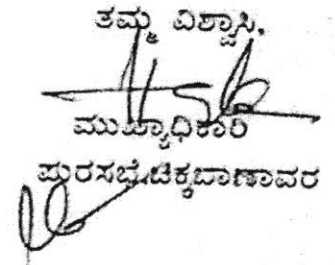 ತಮ್ಮ ವಿಶ್ವಾಸಿ,
ಮುಖ್ಯಾಧಿಕಾರಿ
ಪುರಸಭೆ,ಚಿಕ್ಕಬಾಣಾವರ